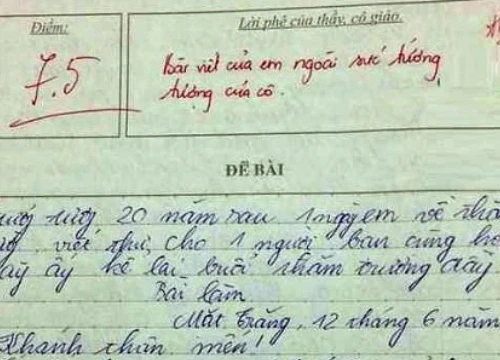 Điểm:
Lời phê của thầy, cô giáo.
7.5
Bài viết của em ngoài sức tưởng
tượng của cô.
ĐỀ BÀI
20 năm sau 1 ngày em về thăm
viết thư cho 1 người bạn cùng
ấy kể lại buổi thăm trường đầy
Bài làm
Mặt trăng, 12 tháng 6 năm
Khanh thân mến!